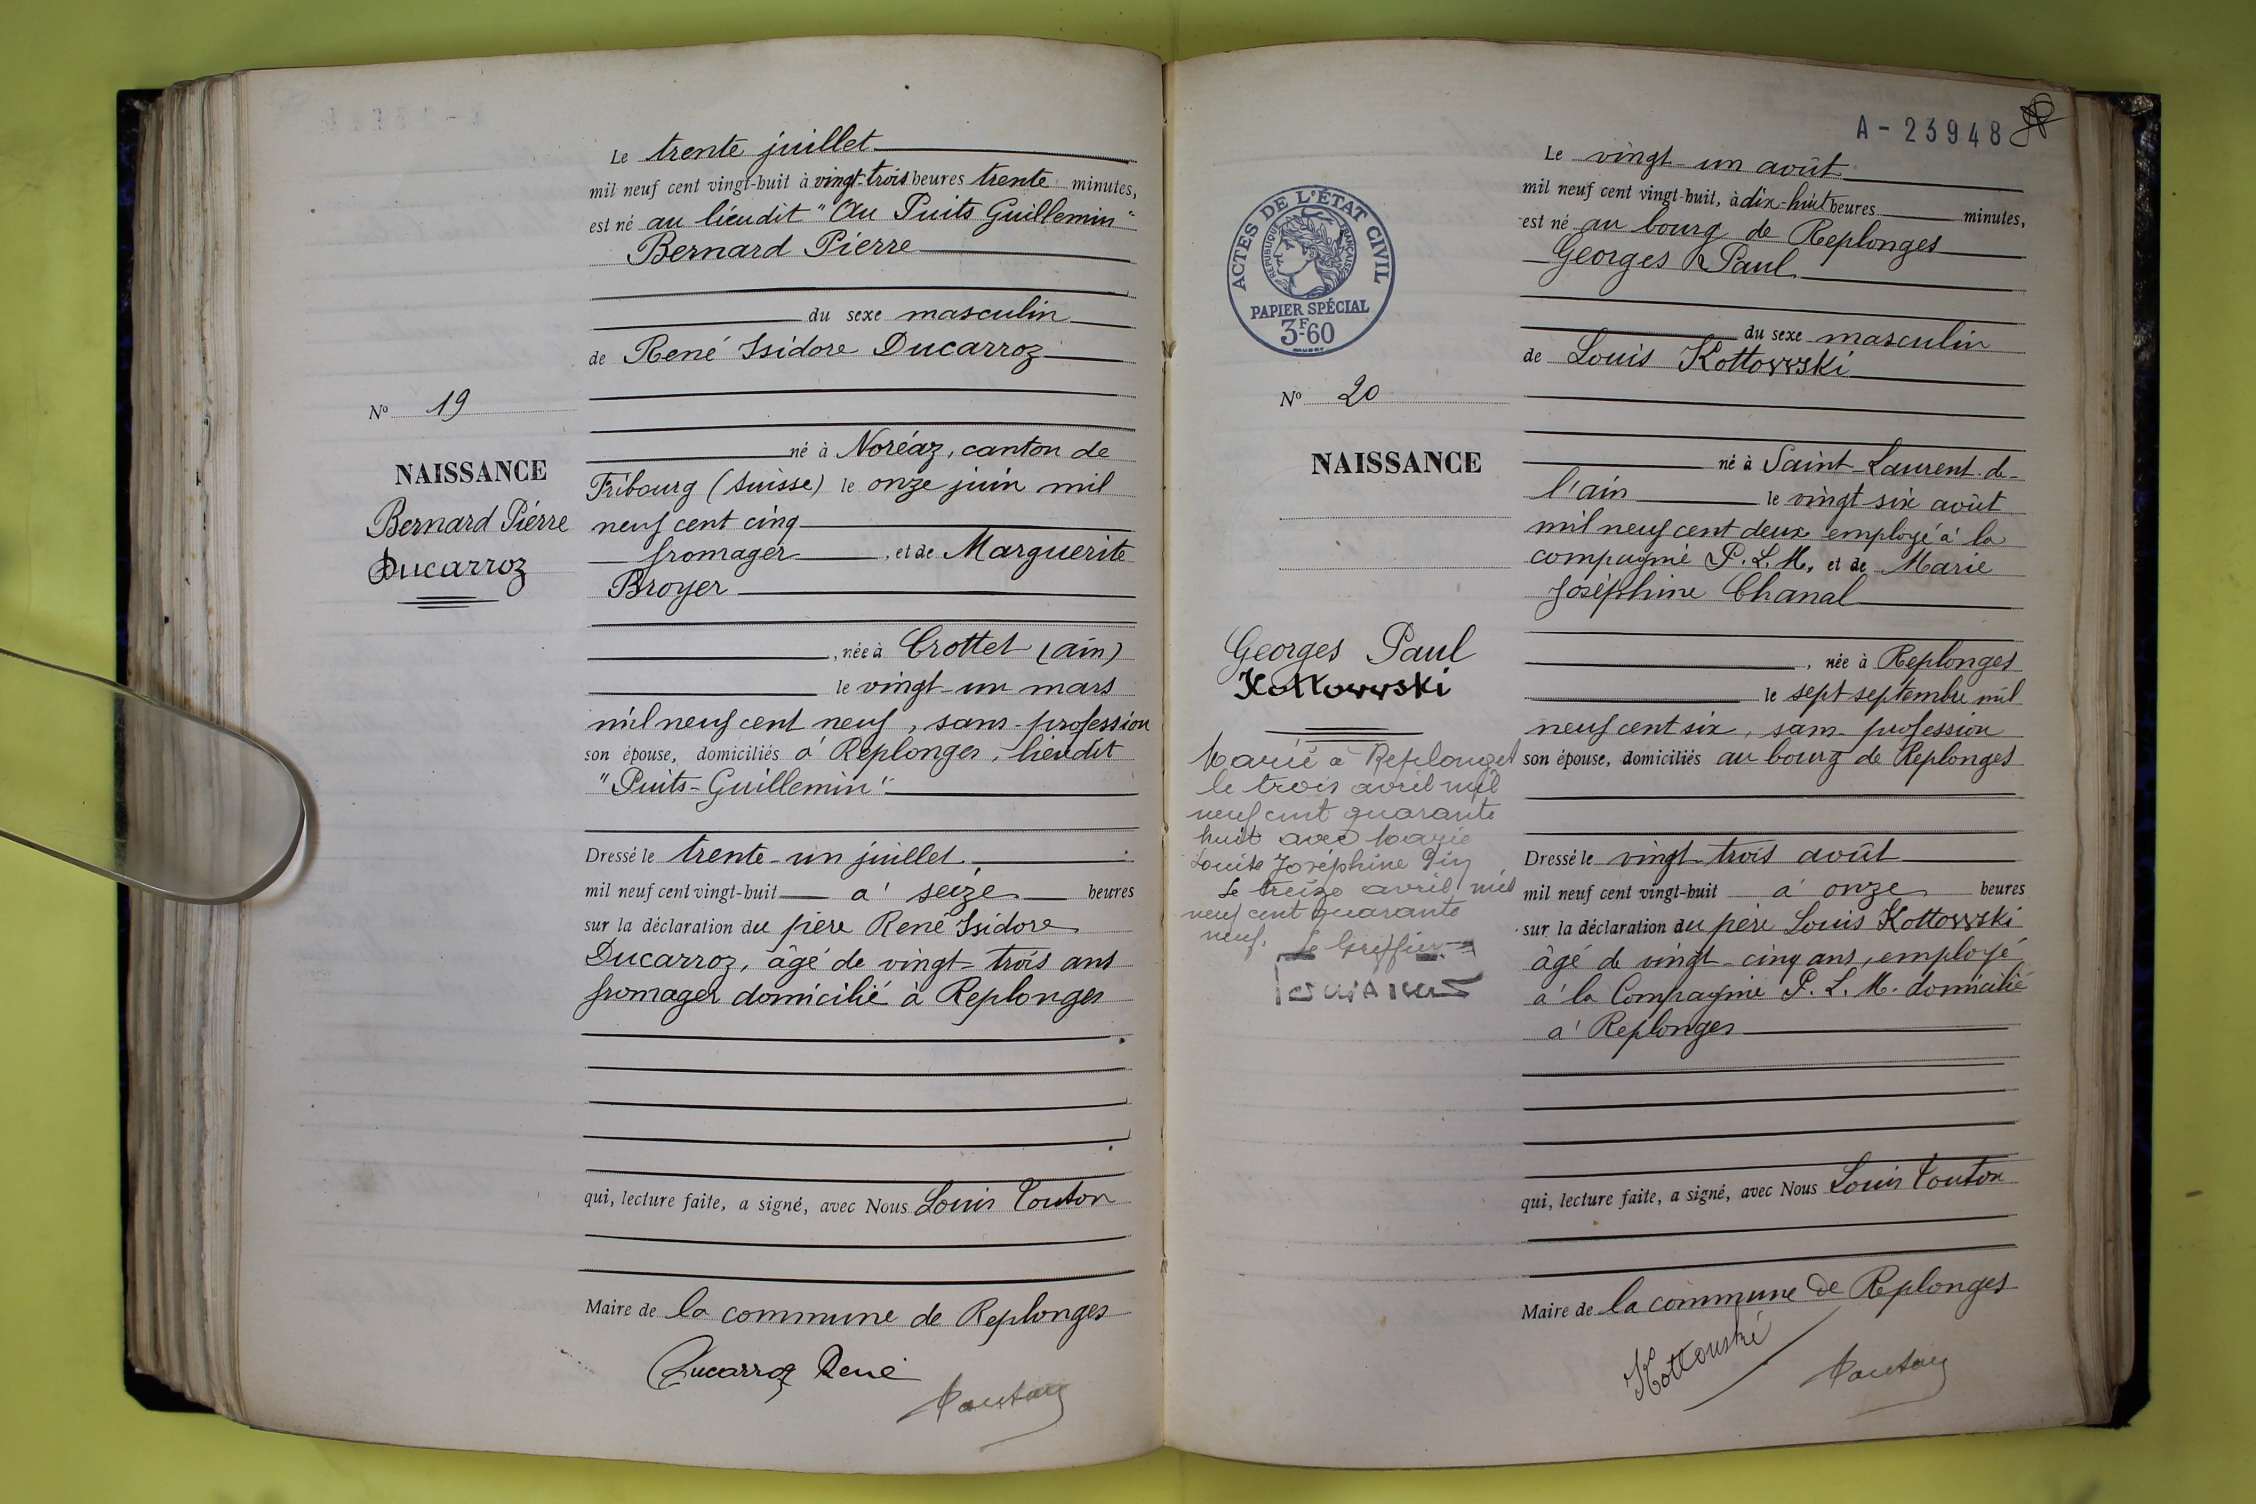 Le trente juillet
mil neuf cent vingt-huit à vingt-trois heures trente minutes,
est né au lieudit "Au Puits Guillemin"
Bernard Pierre
du sexe masculin
de René Isidore Ducarroz
né à Noréaz, canton de
Fribourg (Suisse) le onze juin mil
neuf cent cinq
fromager, et de Marguerite
Broyer
, née à Crottet (Ain)
le vingt-un mars
mil neuf cent neuf, sans profession
son épouse, domiciliés à Replonges, lieudit
"Puits-Guillemin"
Dressé le trente-un juillet
mil neuf cent vingt-huit à seize heures
sur la déclaration du père René Isidore
Ducarroz, âgé de vingt-trois ans
fromager domicilié à Replonges
qui, lecture faite, a signé, avec Nous Louis Touton
Maire de la commune de Replonges
Ducarroz René
Nº 19
NAISSANCE
Bernard Pierre
Ducarroz
A-23948
Le vingt-un août
mil neuf cent vingt-huit, à dix-huit heures minutes,
est né au bourg de Replonges
Georges Paul
du sexe masculin
de Louis Kottowski
né à Saint-Laurent-de-
l'ain le vingt-six août
mil neuf cent deux employé à la
compagnie P.L.M, et de Marie
Joséphine Chanal
, née à Replonges
le sept septembre mil
neuf cent six, sans profession
son épouse, domiciliés au bourg de Replonges
Dressé le vingt-trois août
mil neuf cent vingt-huit à onze heures
sur la déclaration du père Louis Kottowski
âgé de vingt-cinq ans, employé
à la Compagnie P.L.M. domicilié
à Replonges
qui, lecture faite, a signé, avec Nous Louis Touton
Maire de la commune de Replonges
Kottowski
ACTES DE L'ÉTAT CIVIL
RÉPUBLIQUE FRANÇAISE
PAPIER SPÉCIAL
3F60
Nº 20
NAISSANCE
Georges Paul
Kottowski
Marié à Replonges
le trois avril mil
neuf cent quarante
huit avec Marie
Louise Joséphine
Le treize avril mil
neuf cent quarante
neuf. Le Greffier